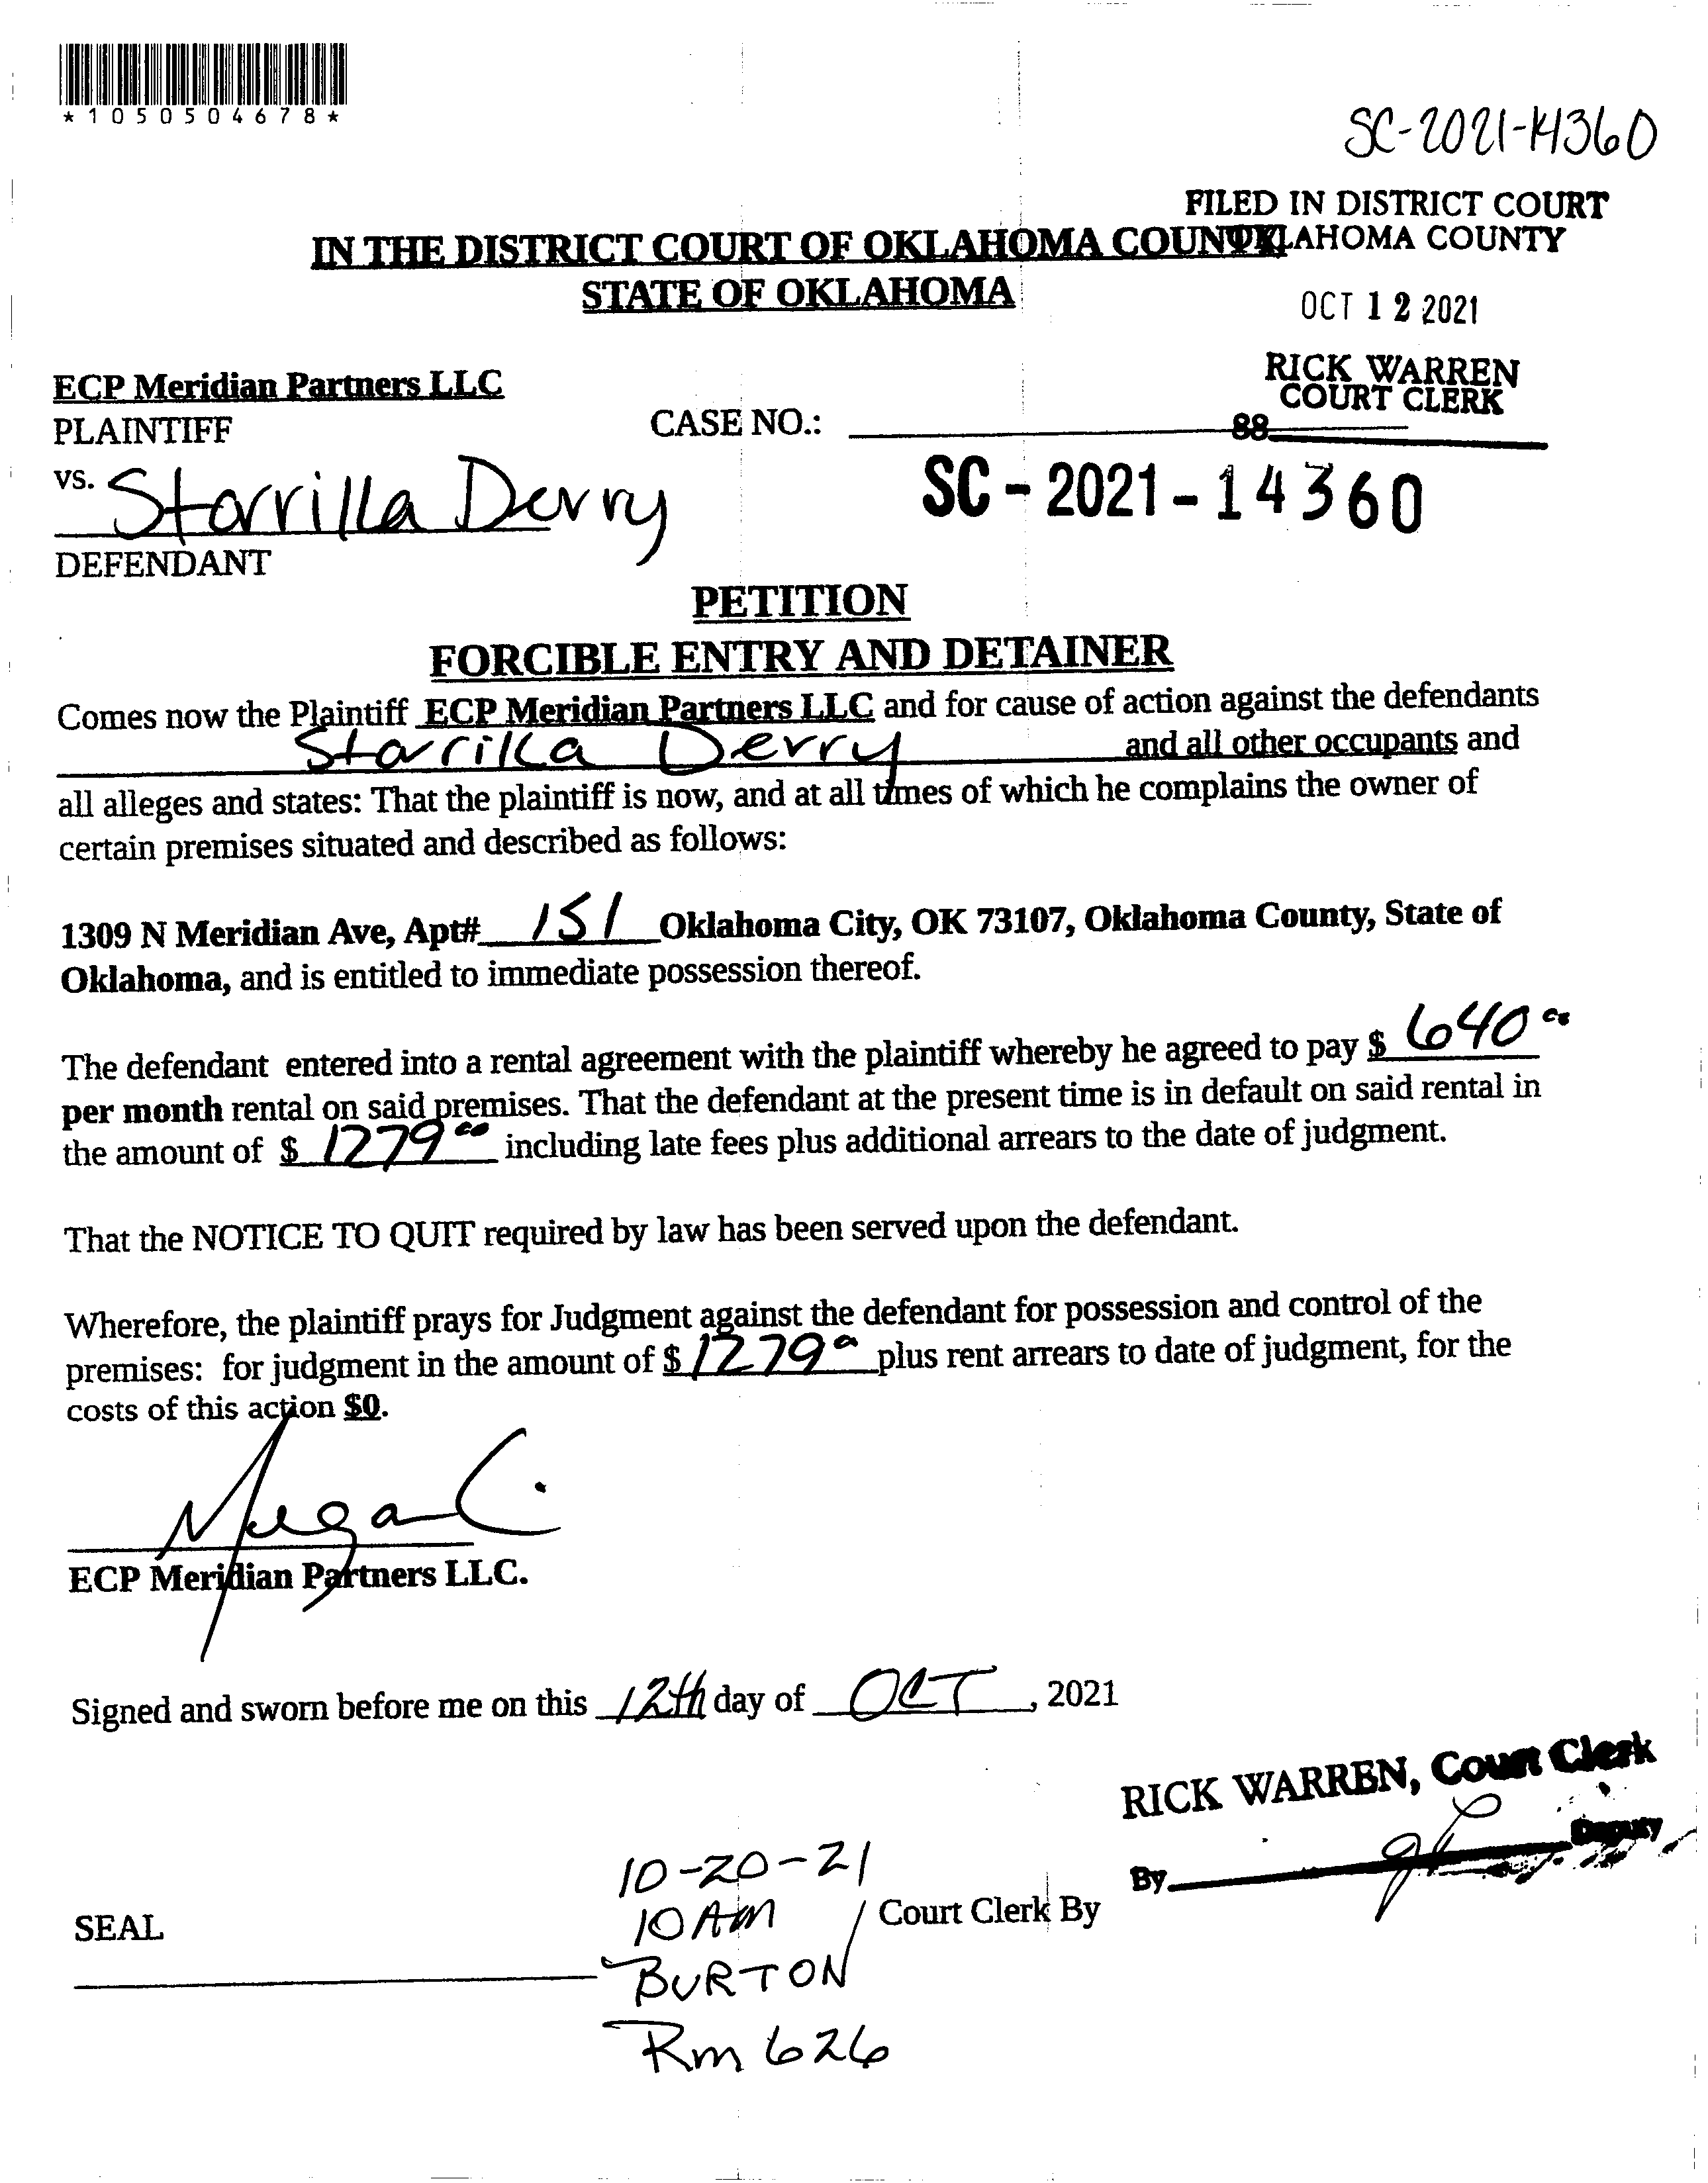 *1050504678*
SC-2021-14360
FILED IN DISTRICT COURT
OKLAHOMA COUNTY
IN THE DISTRICT COURT OF OKLAHOMA COUNTY
STATE OF OKLAHOMA
OCT 12 2021
RICK WARREN
COURT CLERK
ECP Meridian Partners LLC
PLAINTIFF
CASE NO.:
88
vs. Starrilla Derry
SC - 2021 - 14360
DEFENDANT
PETITION
FORCIBLE ENTRY AND DETAINER
Comes now the Plaintiff ECP Meridian Partners LLC and for cause of action against the defendants
Starrilla Derry and all other occupants and
all alleges and states: That the plaintiff is now, and at all times of which he complains the owner of
certain premises situated and described as follows:
1309 N Meridian Ave, Apt# 151 Oklahoma City, OK 73107, Oklahoma County, State of
Oklahoma, and is entitled to immediate possession thereof.
The defendant entered into a rental agreement with the plaintiff whereby he agreed to pay $ 640 00
per month rental on said premises. That the defendant at the present time is in default on said rental in
the amount of $ 1279 00 including late fees plus additional arrears to the date of judgment.
That the NOTICE TO QUIT required by law has been served upon the defendant.
Wherefore, the plaintiff prays for Judgment against the defendant for possession and control of the
premises: for judgment in the amount of $ 1279 00 plus rent arrears to date of judgment, for the
costs of this action $0.
Megan C.
ECP Meridian Partners LLC.
Signed and sworn before me on this 12th day of OCT, 2021
RICK WARREN, Court Clerk
By Deputy
10-20-21
10 AM
SEAL
Court Clerk By
BURTON
Rm 626